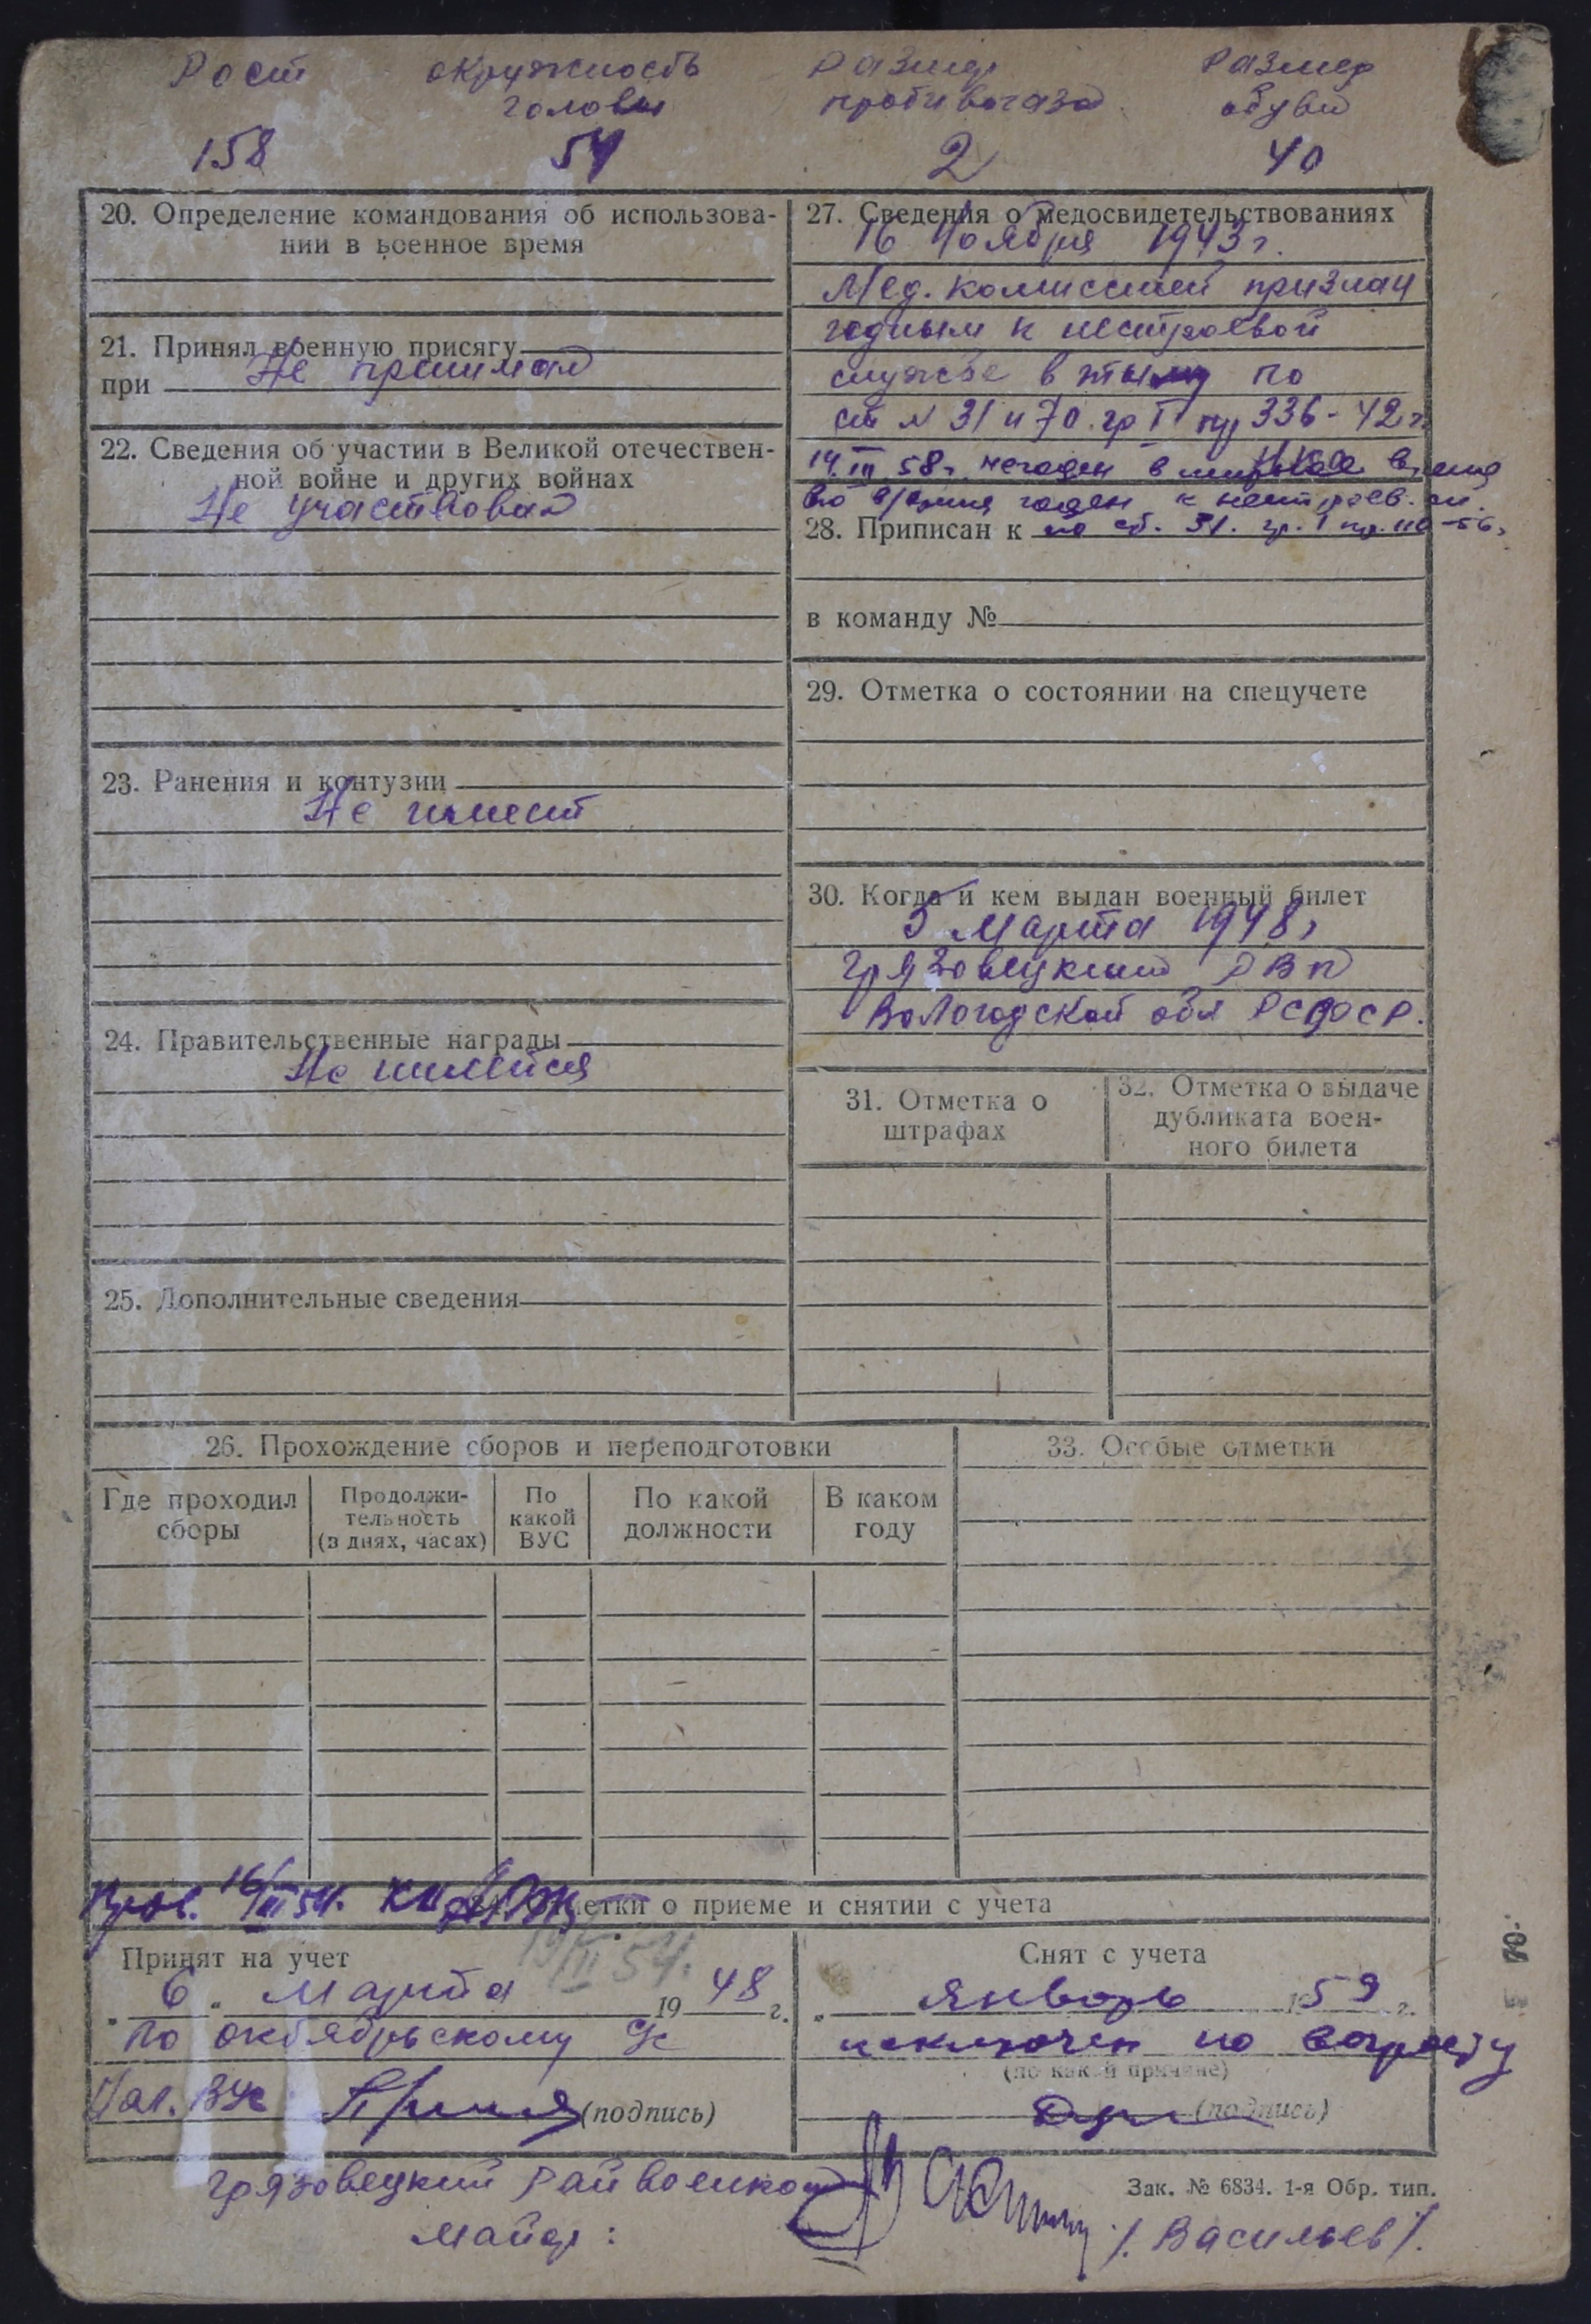 Рост окружность размер размер
головы противогаза обуви
158 54 2 40
20. Определение командования об использова-
нии в военное время
21. Принял военную присягу
при Не принимал
22. Сведения об участии в Великой отечествен-
ной войне и других войнах
Не участвовал
23. Ранения и контузии
Не имеет
24. Правительственные награды
Не имеется
25. Дополнительные сведения
27. Сведения о медосвидетельствованиях
16 Ноября 1943 г.
Мед. комиссией признан
годным к нестроевой
службе в тылу по
ст N 31 и 70 гр I пр 336-42 г.
14.III 58 г. негоден в мирное время
в/время годен к нестроев. сл.
28. Приписан к по ст. 31. гр. 1 пр. 110-56г
в команду №
29. Отметка о состоянии на спецучете
30. Когда и кем выдан военный билет
5 Марта 1948 г
Грязовецким РВК
Вологодской обл РСФСР.
31. Отметка о
штрафах
32. Отметка о выдаче
дубликата воен-
ного билета
26. Прохождение сборов и переподготовки
Где проходил
сборы
Продолжи-
тельность
(в днях, часах)
По
какой
ВУС
По какой
должности
В каком
году
33. Особые отметки
Пров. 16/III 54. отметки о приеме и снятии с учета
III 54.
Принят на учет
„ 6 „ Марта 19 48 г.
по октябрьскому с/с
Нач. ВУС (подпись)
Снят с учета
„ январь 1959 г.
исключен по возрасту
(по какой причине)
(подпись)
Грязовецкий Райвоенком
Майор:
/. Васильев /.
Зак. № 6834. 1-я Обр. тип.